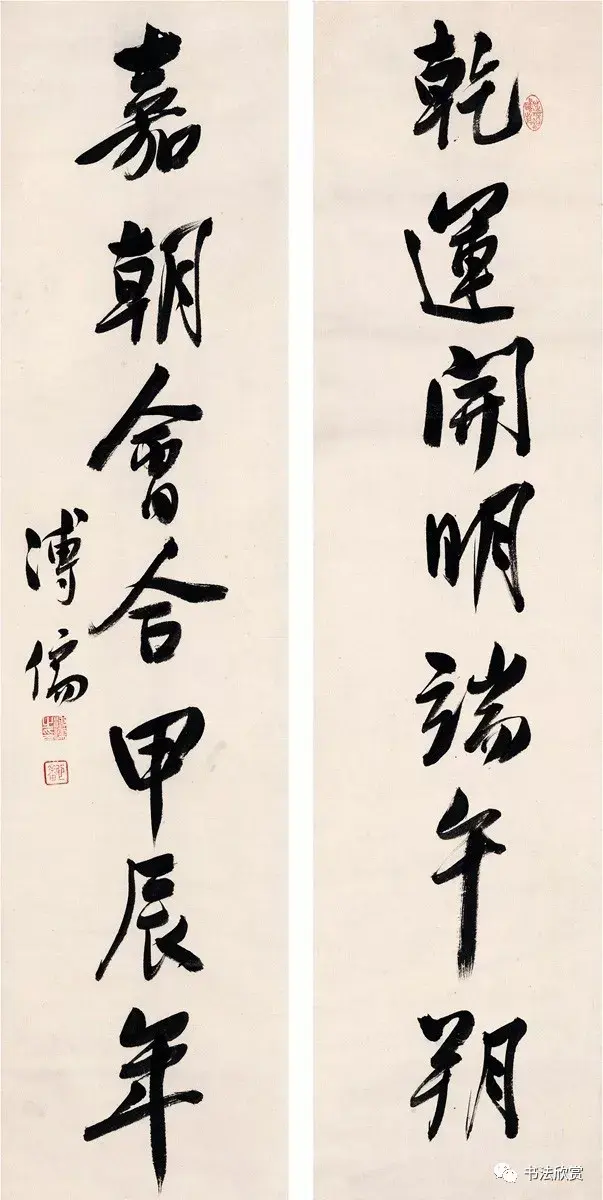 乾運開明端午朔
嘉朝會合甲辰年
溥儒
书法欣赏